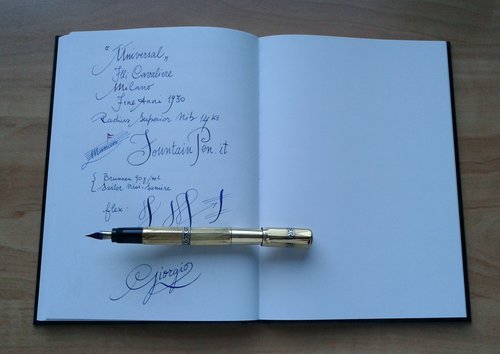 "Universal"
F.lli Cavaliere
Milano
Fine Anni 1930
Radius Superior Nib 14 Kt
FountainPen it
Brunnen 90g/m²
Sailor Nin-Semire
flex:
Giorgio